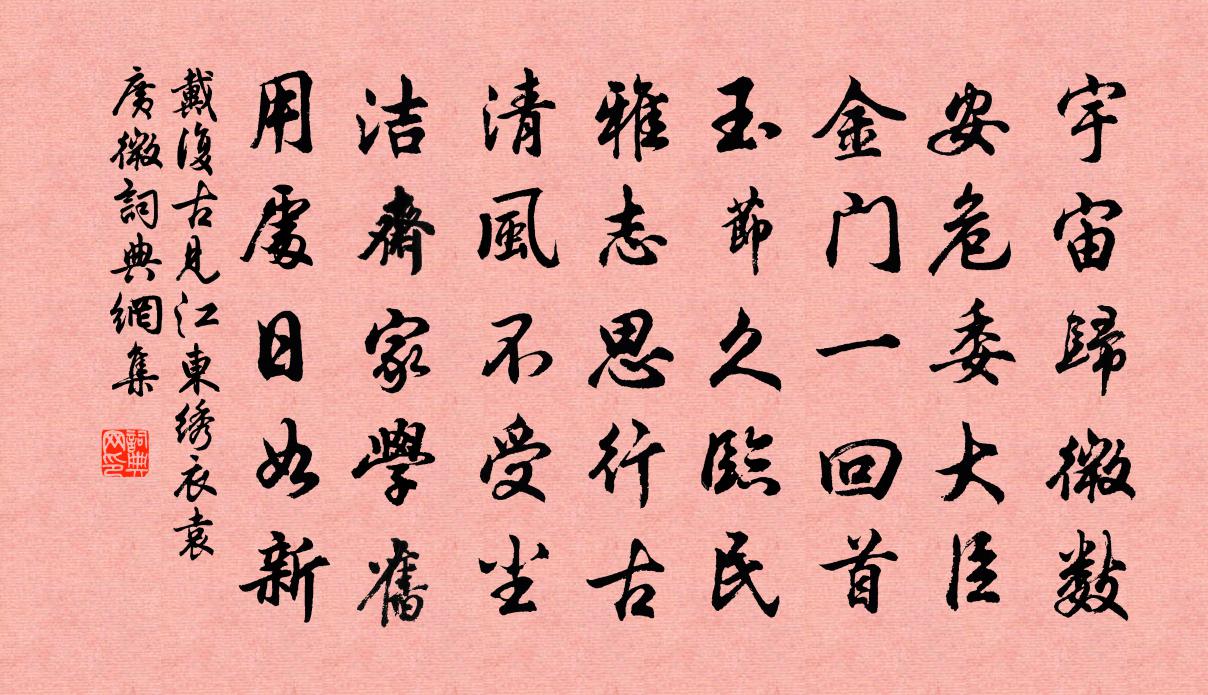 宇宙歸微數
安危委大臣
金门一回首
玉節久臨民
雅志思行古
清風不受尘
洁齋家學舊
用處日如新
戴復古見江東绣衣袁
廣微詞典網集
詞典
网印